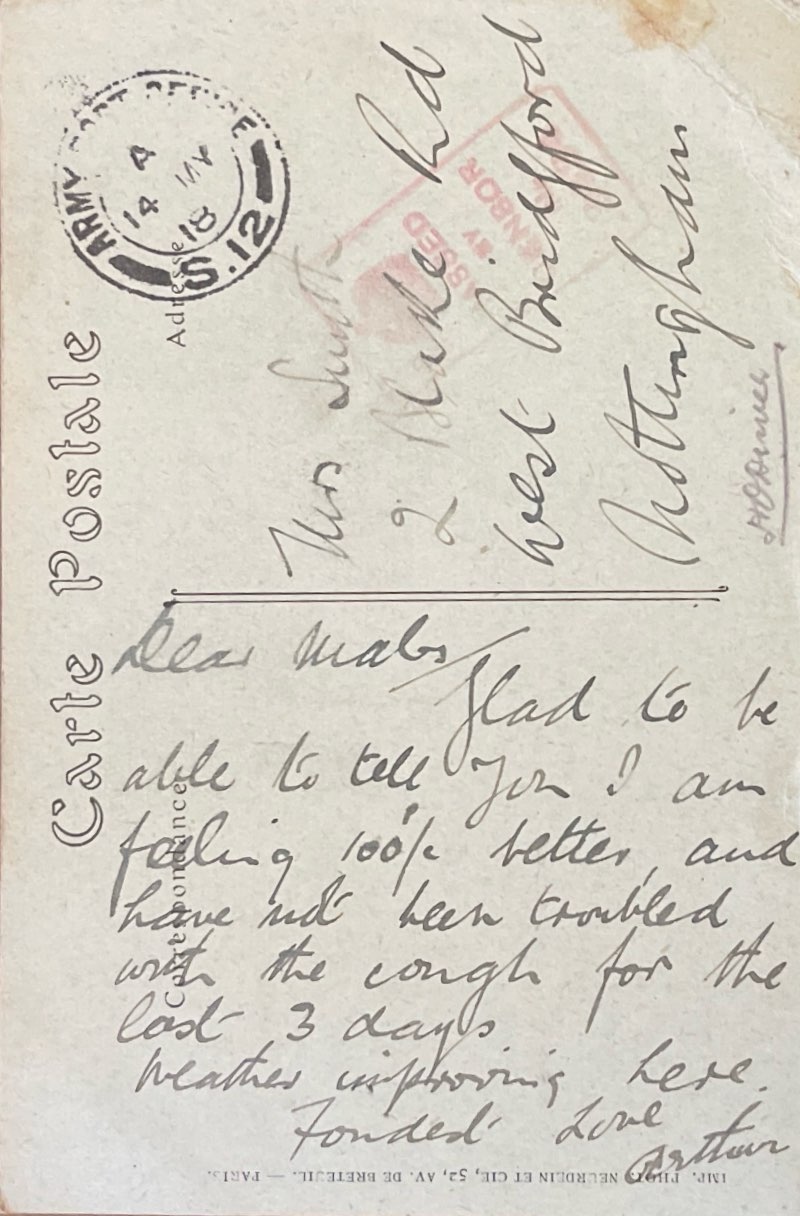 Carte Postale
Correspondance
Adresse
ARMY POST OFFICE
4
14 MY
18
S.12
PASSED
BY
CENSOR
Mrs Smith
2 Blake Rd
West Bridgford
Nottingham
Dear Mabs
Glad to be
able to tell you I am
feeling 100% better, and
have not been troubled
with the cough for the
last 3 days
Weather improving here.
Fondest Love
Arthur
IMP. PHOT. NEURDEIN ET CIE, 52, AV. DE BRETEUIL. — PARIS.